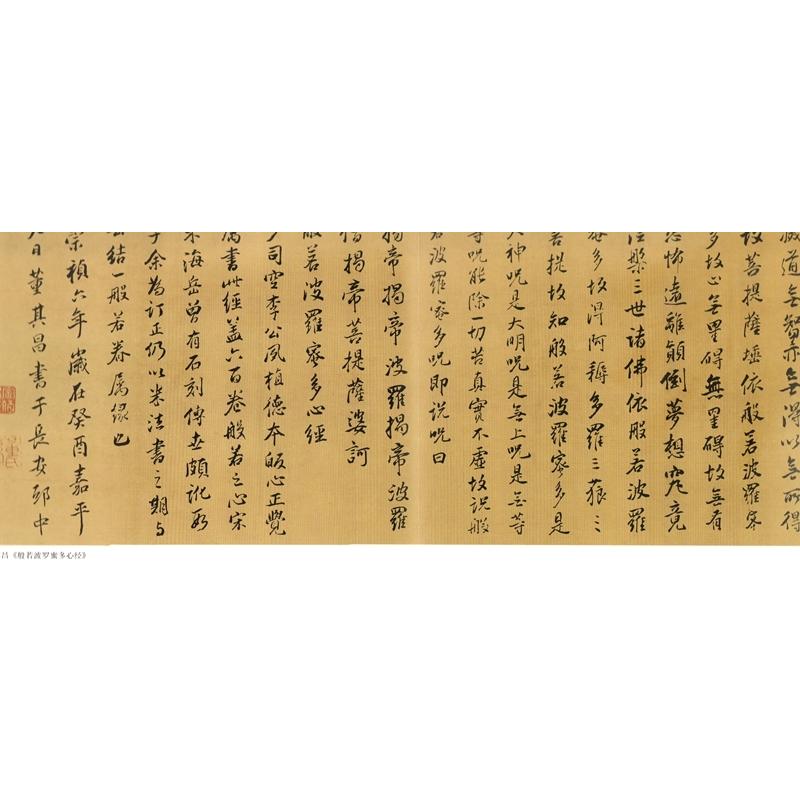 滅道無智亦無得以無所得
故菩提薩埵依般若波羅蜜
多故心無罣碍無罣碍故無有
恐怖遠離顛倒夢想究竟
涅槃三世諸佛依般若波羅
蜜多故得阿耨多羅三藐三
菩提故知般若波羅蜜多是
大神呪是大明呪是無上呪是無等
等呪能除一切苦真實不虛故説般
若波羅蜜多呪即説呪曰
揭帝揭帝波羅揭帝波羅
僧揭帝菩提薩婆訶
般若波羅蜜多心經
司空李公夙植德本皈心正覺
屬書此經蓋六百卷般若之心宋
米海岳曾有石刻傳世頗訛
余為訂正仍以米法書之期与
公結一般若眷属緣已
崇禎六年歲在癸酉嘉平
八日董其昌書于長安邸中
昌《般若波罗蜜多心经》